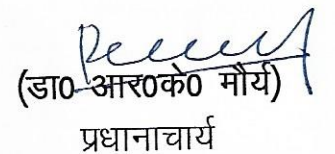 (डा0 आर0के0 मौर्य)
प्रधानाचार्य